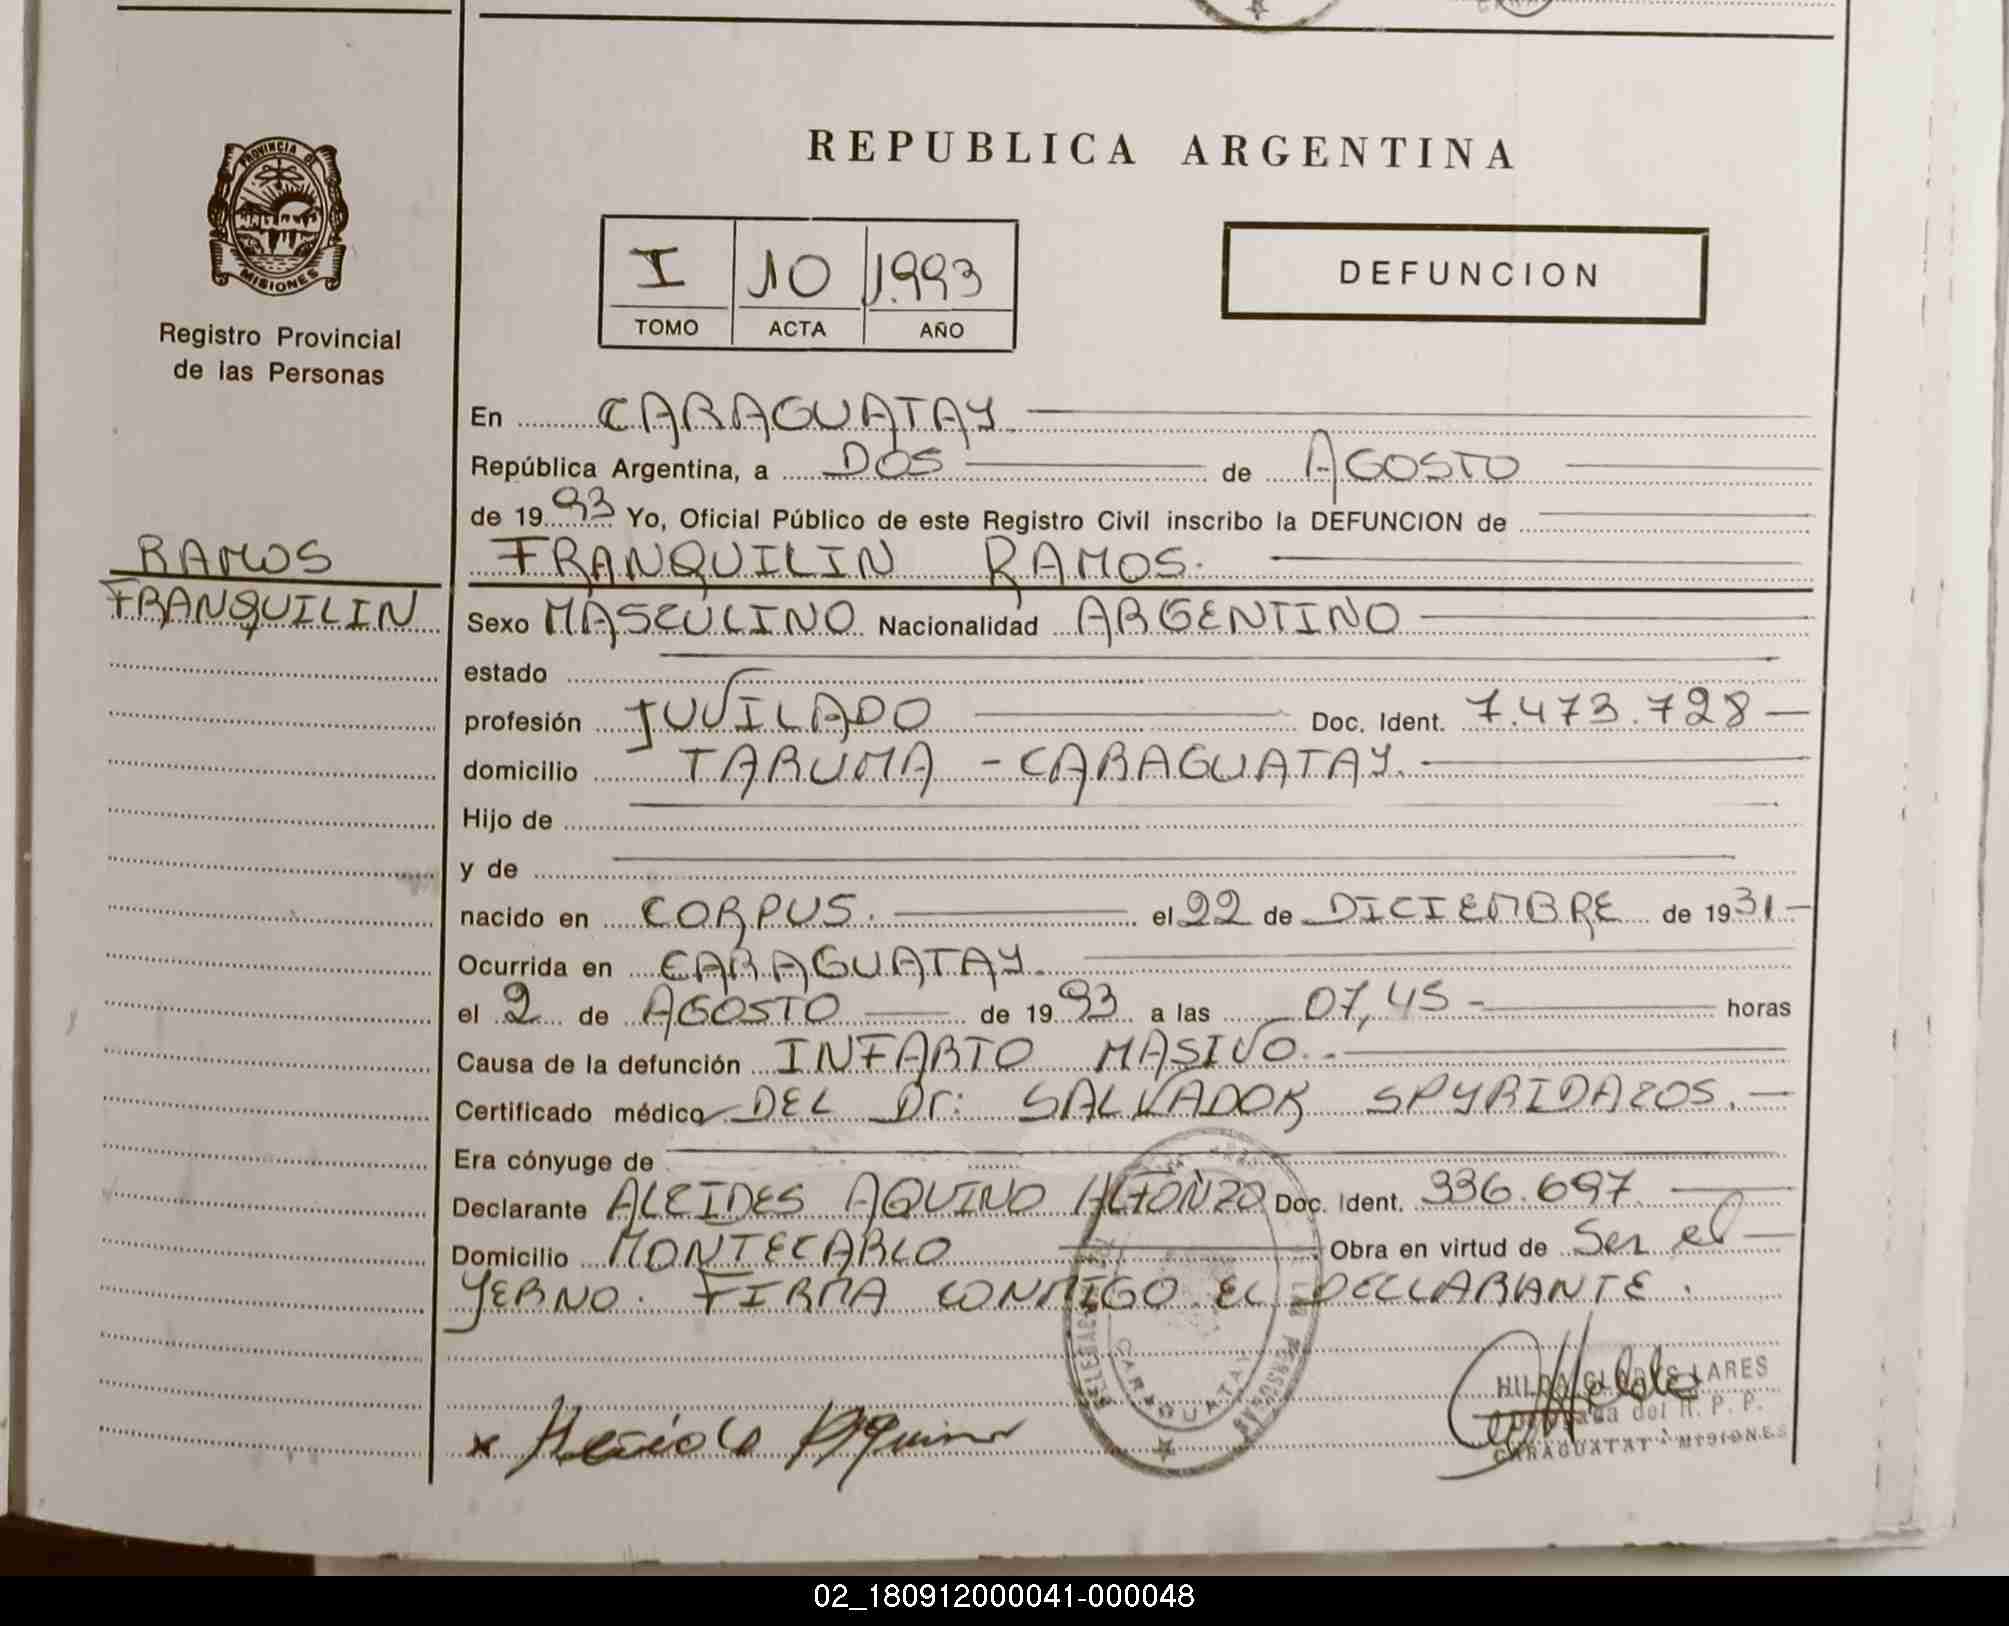 REPUBLICA ARGENTINA
PROVINCIA DE
MISIONES
Registro Provincial
de las Personas
I 10 1.993
TOMO ACTA AÑO
DEFUNCION
En CARAGUATAY.
República Argentina, a DOS de AGOSTO
de 1993 Yo, Oficial Público de este Registro Civil inscribo la DEFUNCION de
RAMOS
FRANQUILIN RAMOS.
FRANQUILIN
Sexo MASCULINO Nacionalidad ARGENTINO
estado
profesión JUVILADO Doc. Ident. 7.473.728
domicilio TARUMA - CARAGUATAY.
Hijo de
y de
nacido en CORPUS. el 22 de DICIEMBRE de 1931
Ocurrida en CARAGUATAY.
el 2 de AGOSTO de 1993 a las 07,45 - horas
Causa de la defunción INFARTO MASIVO.-
Certificado médico DEL Dr: SALVADOR SPYRIDAZOS.
Era cónyuge de
Declarante ALCIDES AQUINO ALFONZO Doc. Ident. 336.697
Domicilio MONTECARLO Obra en virtud de Ser el
YERNO. FIRMA CONMIGO EL DECLARANTE.
CARAGUATAY
x Aquino
HILDA GLADYS LARES
del R. P. P.
CARAGUATAY - MISIONES
02_180912000041-000048